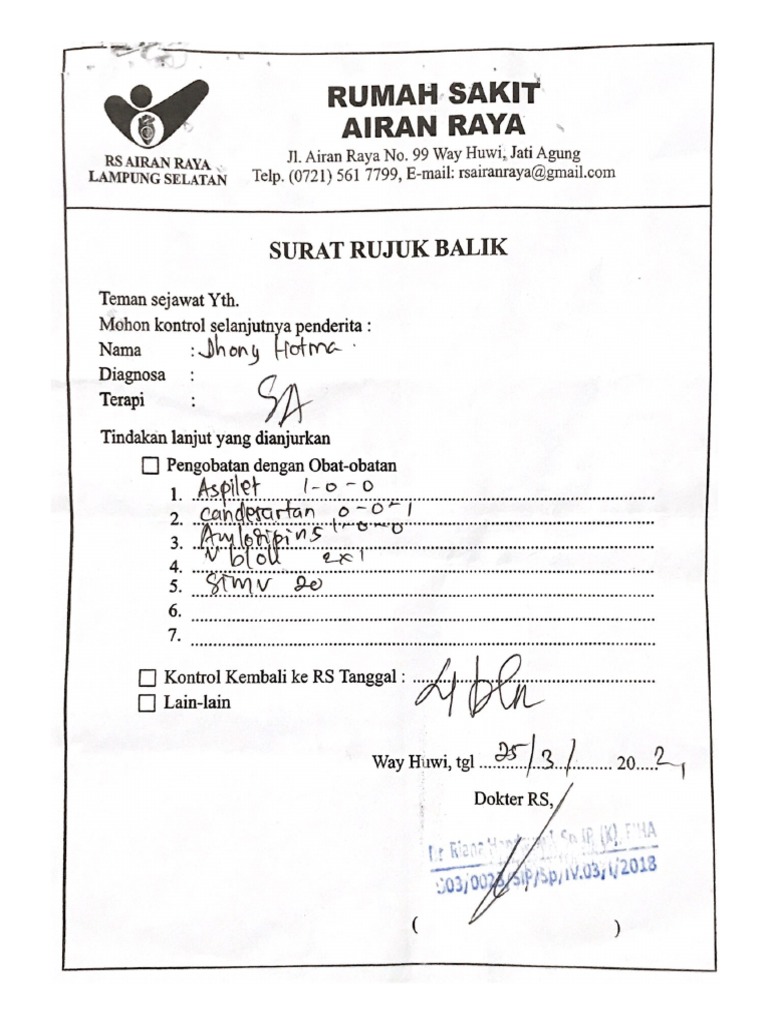 RS AIRAN RAYA
LAMPUNG SELATAN
RUMAH SAKIT
AIRAN RAYA
Jl. Airan Raya No. 99 Way Huwi, Jati Agung
Telp. (0721) 561 7799, E-mail: rsairanraya@gmail.com
SURAT RUJUK BALIK
Teman sejawat Yth.
Mohon kontrol selanjutnya penderita :
Nama : Jhony Hotma
Diagnosa :
Terapi : SA
Tindakan lanjut yang dianjurkan
Pengobatan dengan Obat-obatan
1. Aspilet 1-0-0
2. Candesartan 0-0-1
3. 1-0-0
4. 2x1
5. 20
6.
7.
Kontrol Kembali ke RS Tanggal : bln
Lain-lain
Way Huwi, tgl 25/3/ 20 2
Dokter RS,
Sp.JP (K), FIHA
503/0023/SIP/Sp/IV.03/I/2018
( )